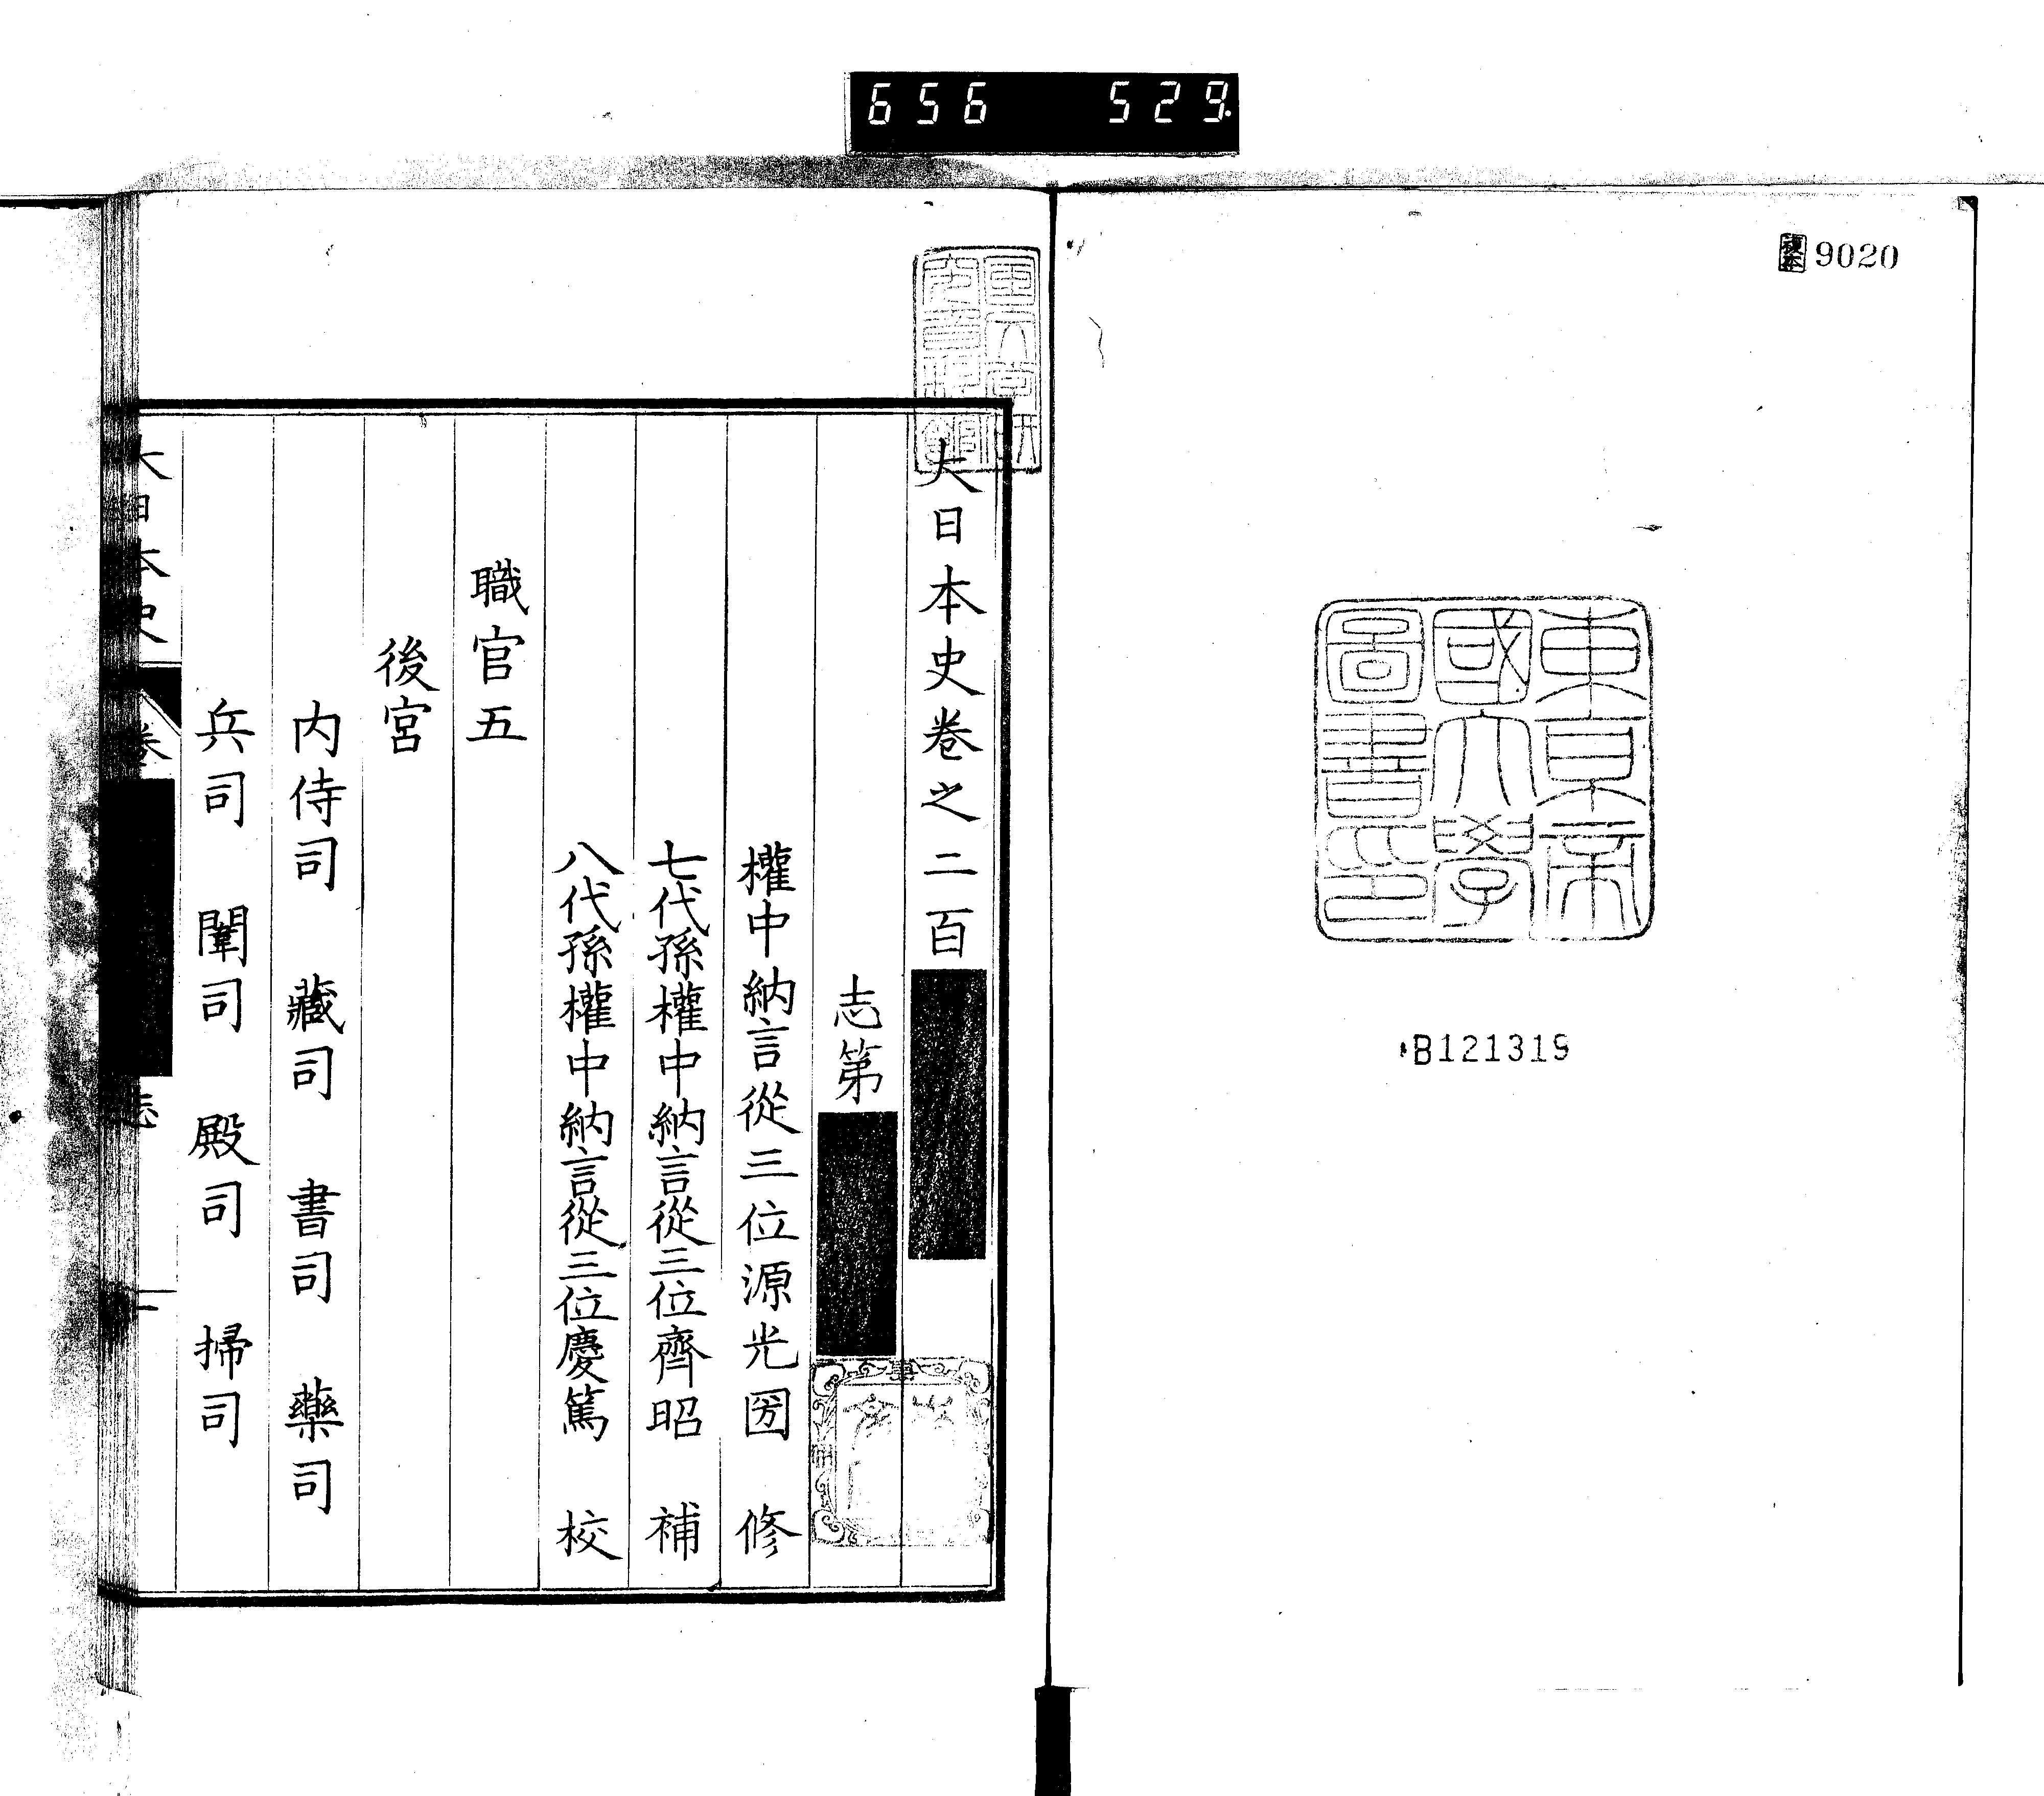 656 529.
複本 9020
東京帝
國大學
圖書印
B121319
大日本史卷之二百
志第
權中納言從三位源光圀 修
七代孫權中納言從三位齊昭 補
八代孫權中納言從三位慶篤 校
職官五
後宮
内侍司 藏司 書司 藥司
兵司 闈司 殿司 掃司
大日本史 卷 志 一